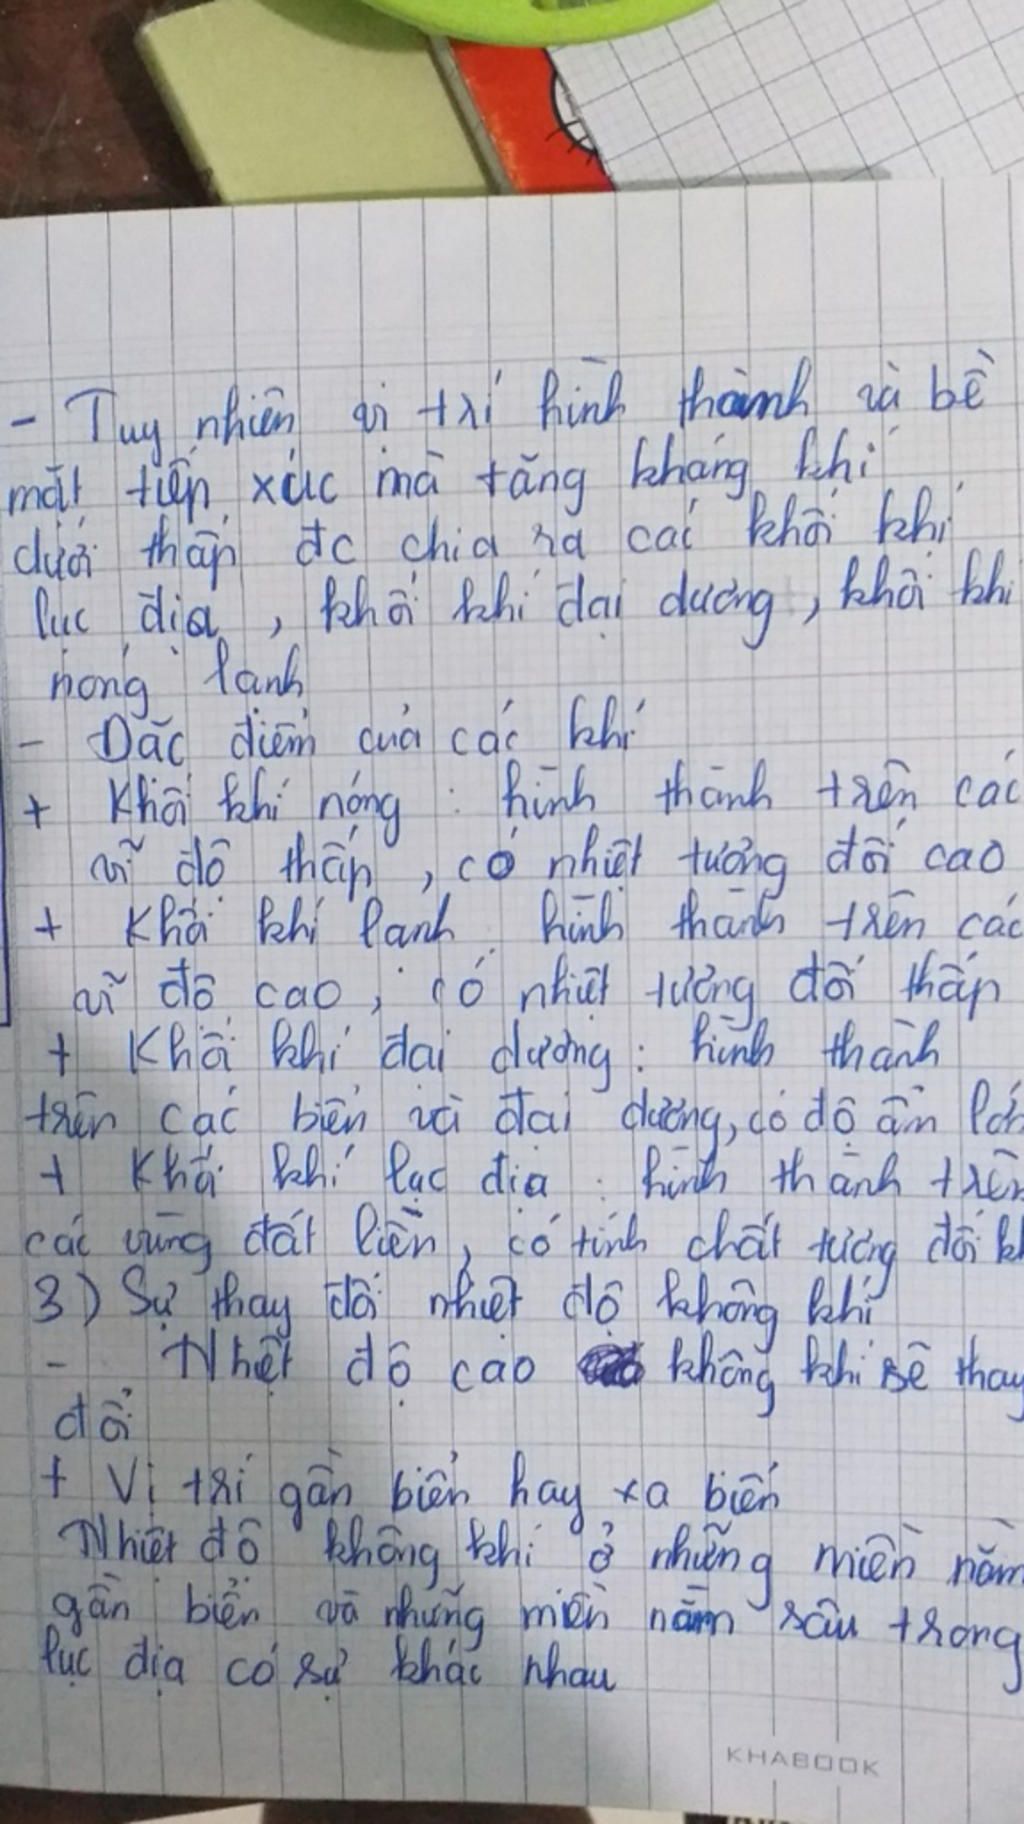 - Tuy nhiên vị trí hình thành và bề
mặt tiếp xúc mà tầng kháng khí
dưới thấp đc chia ra các khối khí
lục địa, khối khí đại dương, khối khí
nóng lạnh
- Đặc điểm của các khí
+ Khối khí nóng: hình thành trên các
vĩ độ thấp, có nhiệt tương đối cao
+ Khối khí lạnh: hình thành trên các
vĩ độ cao, có nhiệt tương đối thấp
+ Khối khí đại dương: hình thành
trên các biển và đại dương, có độ ẩm lớn
+ Khối khí lục địa: hình thành trên
các vùng đất liền, có tính chất tương đối
3) Sự thay đổi nhiệt độ không khí
- Nhiệt độ cao không khí sẽ thay
đổi
+ Vị trí gần biển hay xa biển
Nhiệt độ không khí ở những miền nằm
gần biển và những miền nằm sâu trong
lục địa có sự khác nhau
KHABOOK